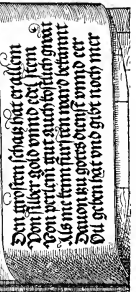 Den grossen schatz hat er allein
Von silber gold vnnd edel stein
Von perlein gut auch köstlich gwat
Als mein
fürsten ward bekannt
Dauon zu gottes dienst vnnd eer
Vil geben hat vnd gibt noch mer